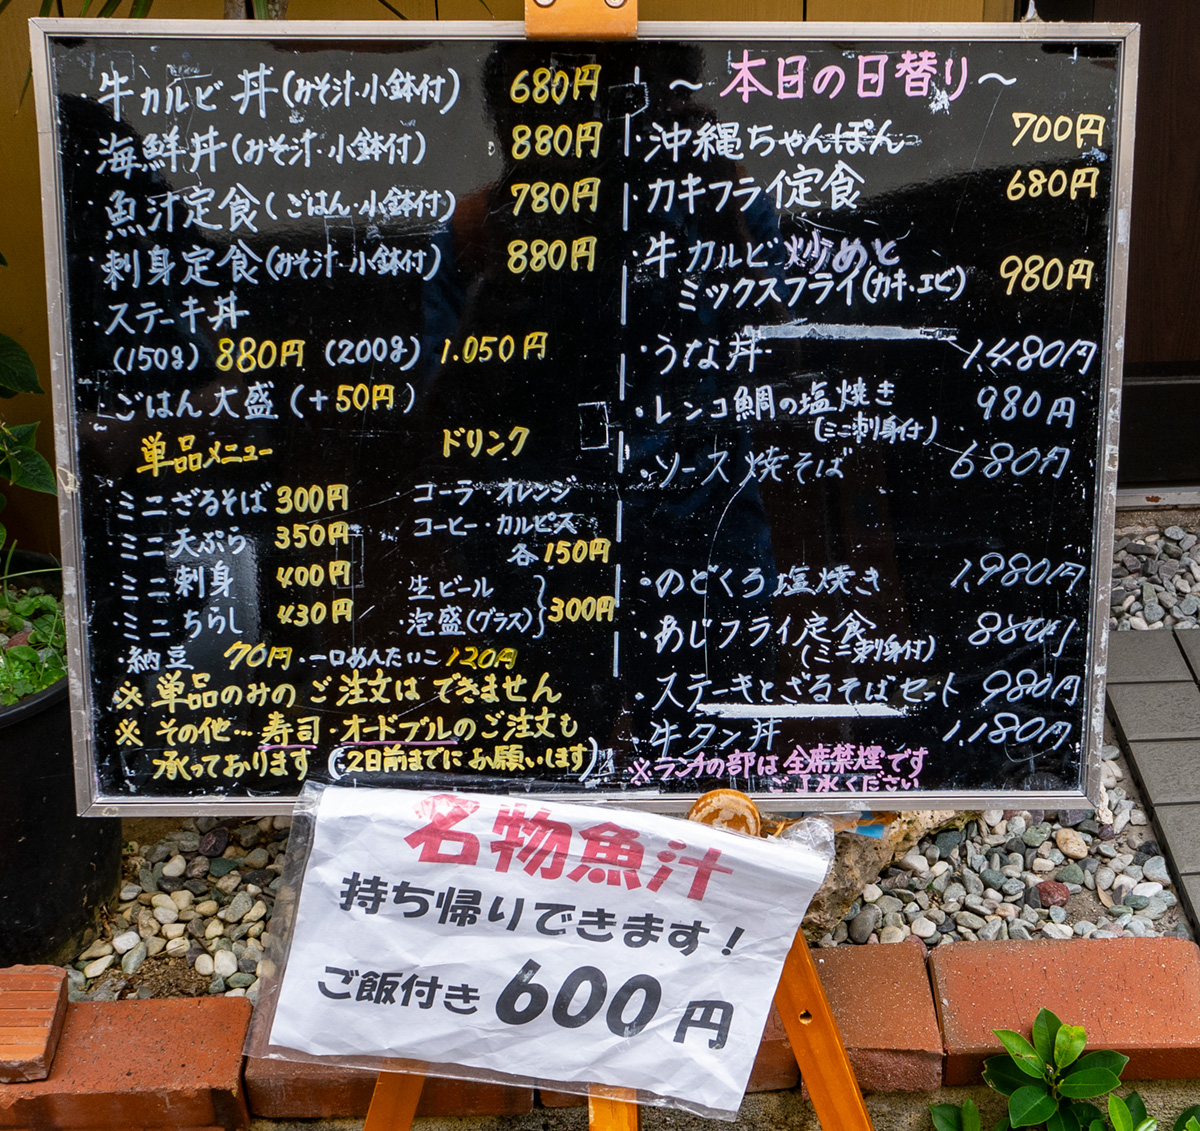 ・牛カルビ丼(みそ汁・小鉢付) 680円
・海鮮丼(みそ汁・小鉢付) 880円
・魚汁定食(ごはん・小鉢付) 780円
・刺身定食(みそ汁・小鉢付) 880円
・ステーキ丼
(150g) 880円 (200g) 1.050円
・ごはん大盛(+50円)
単品メニュー
・ミニざるそば 300円
・ミニ天ぷら 350円
・ミニ刺身 400円
・ミニちらし 430円
・納豆 70円・一口めんたいこ 120円
ドリンク
・コーラ・オレンジ
コーヒー・カルピス
各150円
生ビール
・泡盛(グラス) 300円
※単品のみのご注文はできません
※その他…寿司・オードブルのご注文も
承っております(2日前までにお願いします)
〜本日の日替り〜
・沖縄ちゃんぽん 700円
・カキフライ定食 680円
・牛カルビ炒めと
ミックスフライ(カキ・エビ) 980円
・うな丼 1.480円
・レンコ鯛の塩焼き 980円
(ミニ刺身付)
・ソース焼そば 680円
・のどくろ塩焼き 1.980円
・あじフライ定食 880円
(ミニ刺身付)
・ステーキとざるそばセット 980円
・牛タン丼 1.180円
※ランチの部は全席禁煙です
ご了承ください
名物魚汁
持ち帰りできます!
ご飯付き600円